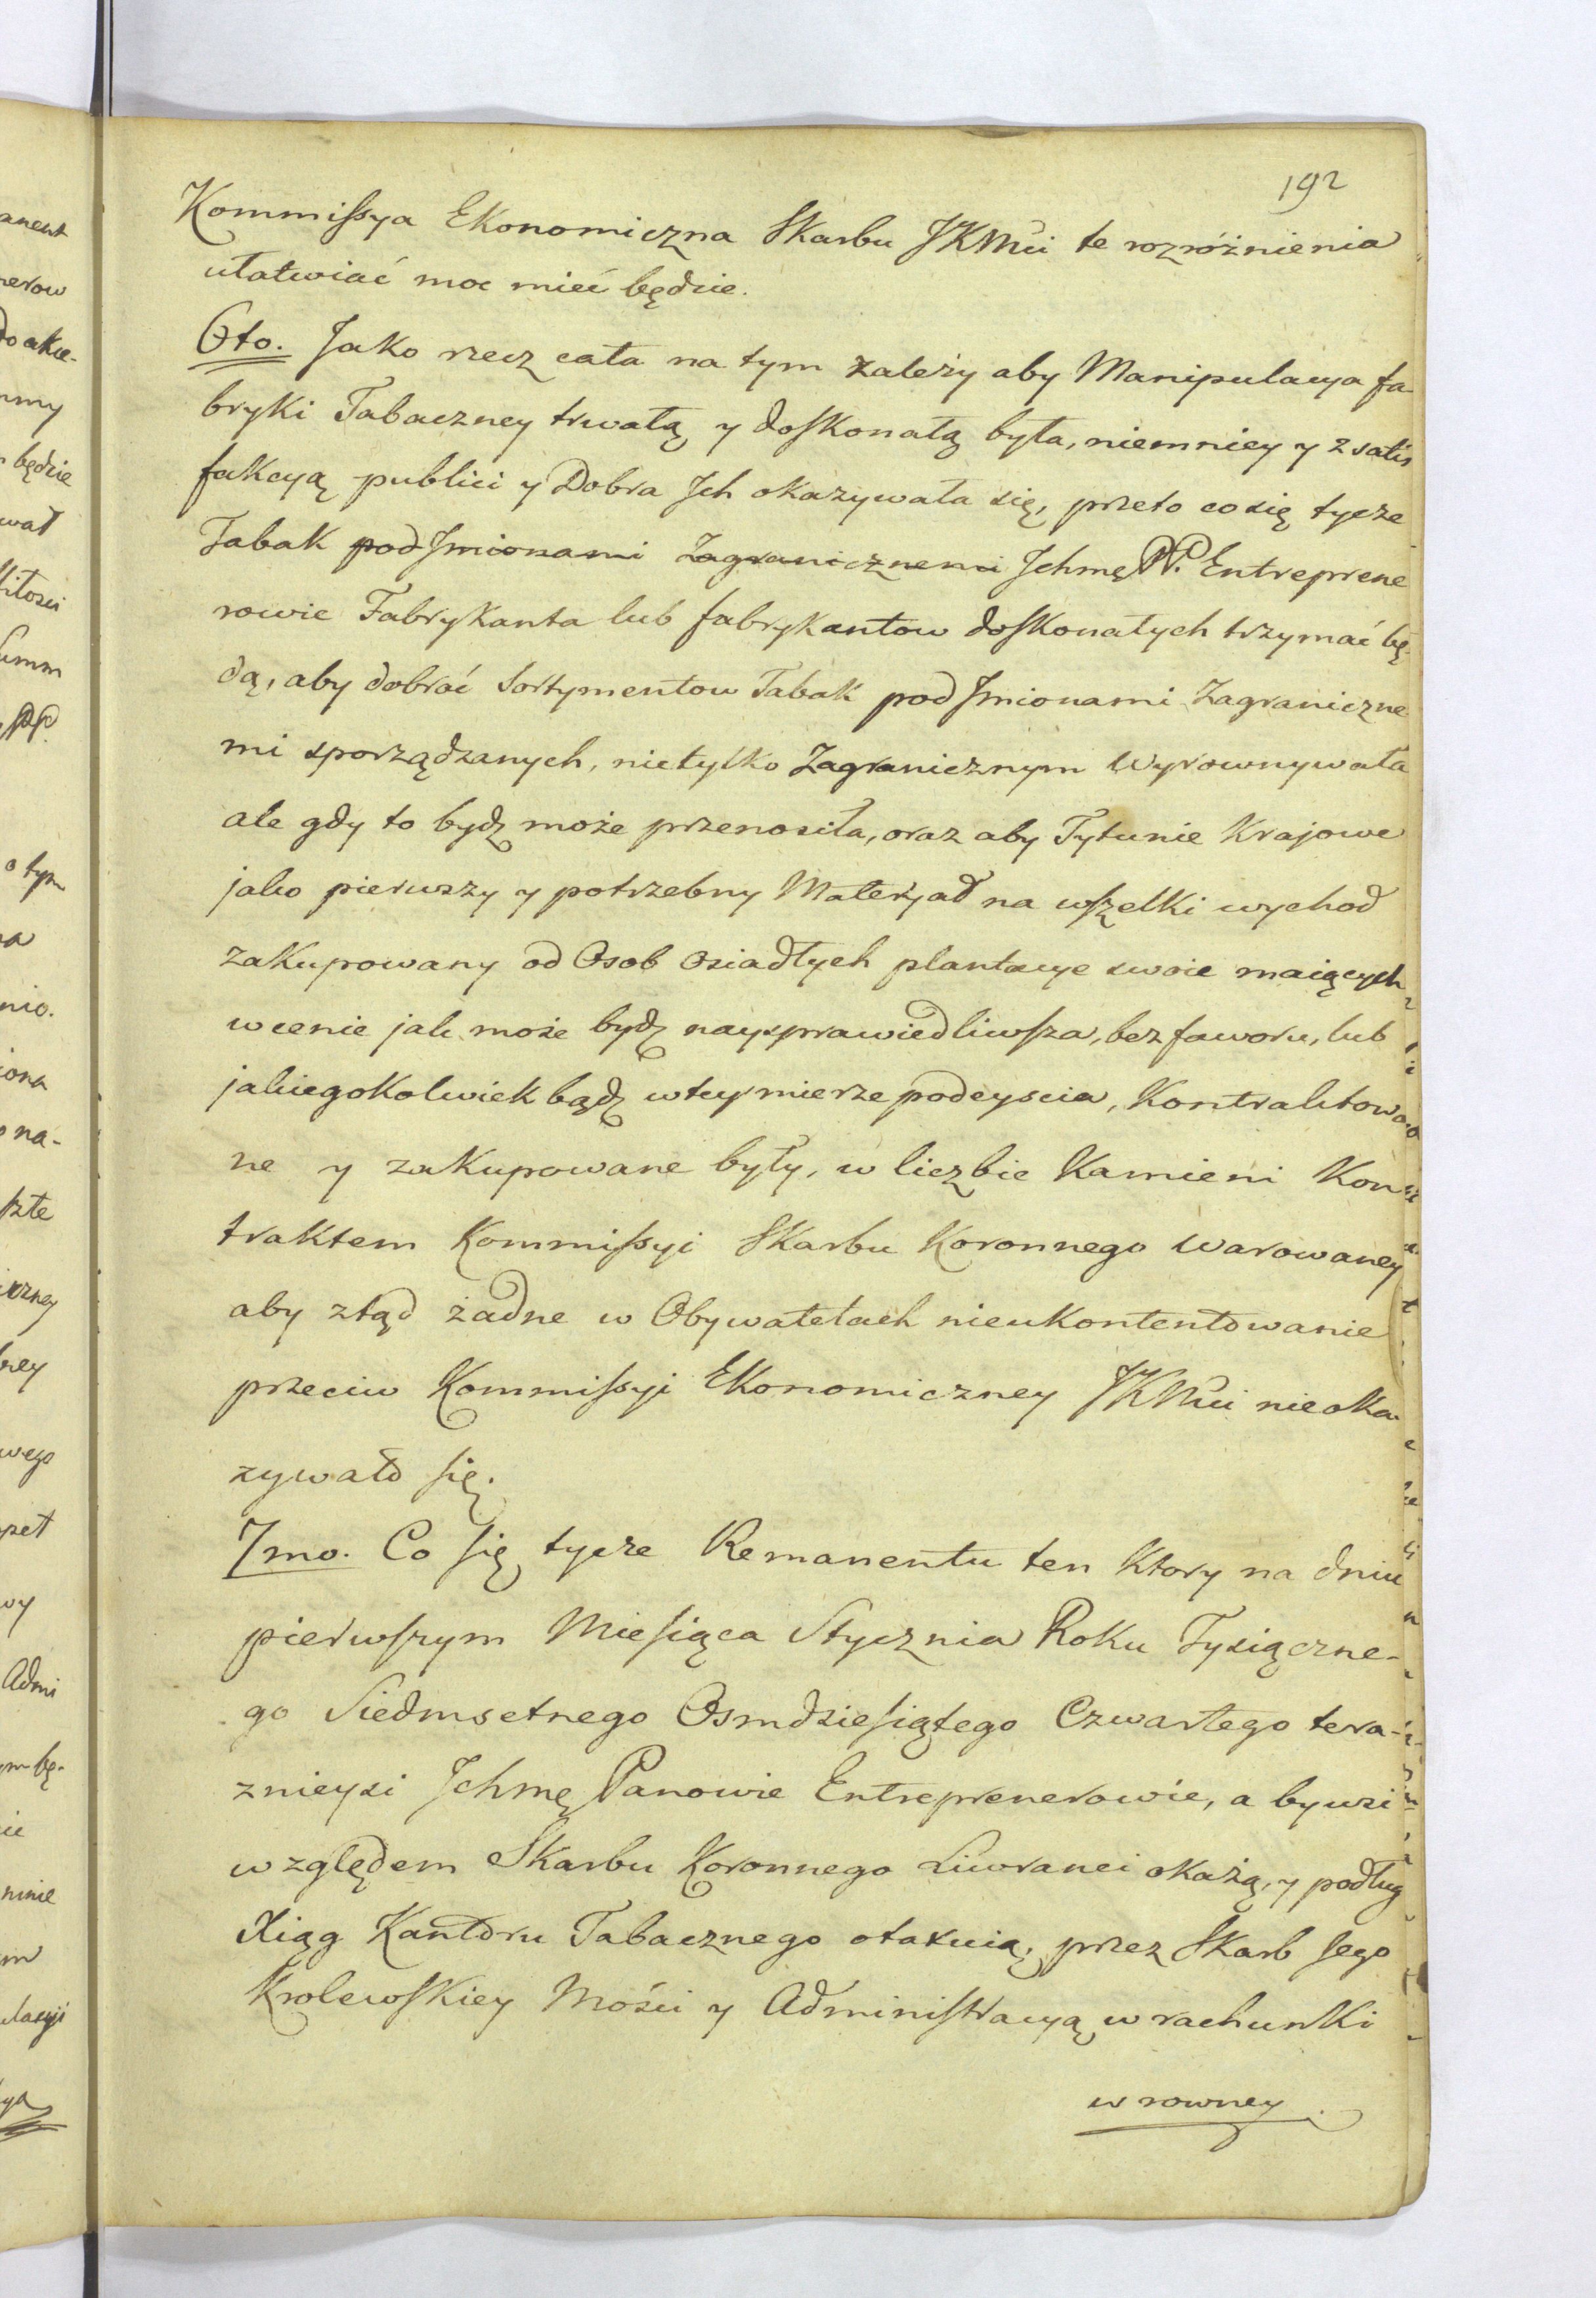 192
Kommissya Ekonomiczna Skarbu JKMci te rozróżnienia
ułatwiać moc mieć będzie.
6to. Jako rzecz cała na tym zależy aby Manipulacya fa-
bryki Tabaczney trwałą y doskonałą była, niemniey y z satis
fakcyą publici y Dobra Ich okazywała się, przeto co się tycze
Tabak pod Imionami Zagranicznemi Ichmę PP. Entreprene
rowie Fabrykanta lub fabrykantow doskonałych trzymać bę-
dą, aby dobroć Sortymentow Tabak pod Imionami Zagraniczne
mi sporządzanych, nietylko Zagranicznym wyrownywała
ale gdy to bydz może przenosiła, oraz aby Tytunie Krajowe
jako pierwszy y potrzebny Materyał na wszelki wychod
zakupowany od Osob Osiadłych plantacye swoie maiących
w cenie jak może bydz naysprawiedliwsza, bez faworu, lub
jakiegokolwiek bądz w tey mierze podeyscia, Kontraktowa-
ne y zakupowane były, w liczbie Kamieni Kon
traktem Kommissyi Skarbu Koronnego warowaney
aby ztąd żadne w Obywatelach nieukontentowanie
przeciw Kommissyi Ekonomiczney JKMci nie oka
zywało się.
7mo. Co się tycze Remanentu ten ktory na dniu
pierwszym Miesiąca Stycznia Roku Tysiączne-
go Siedmsetnego Osmdziesiątego Czwartego tera-
znieysi Ichmę Panowie Entreprenerowie, a bywsi
względem Skarbu Koronnego Liwranci okażą, y podług
Xiąg Kantoru Tabacznego otaxuią, przez Skarb Jego
Krolewskiey Mości y Administracyą w rachunki
w rowney